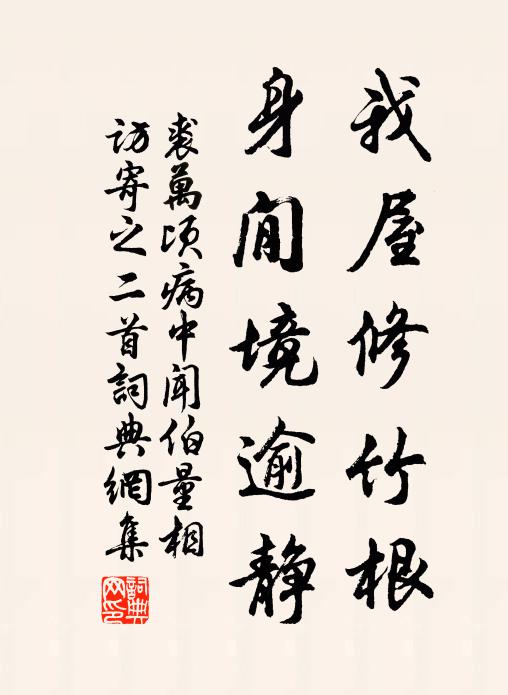 我屋修竹根
身閒境逾静
裘萬頃病中聞伯量相
訪寄之二首詞典網集
詞典
网印